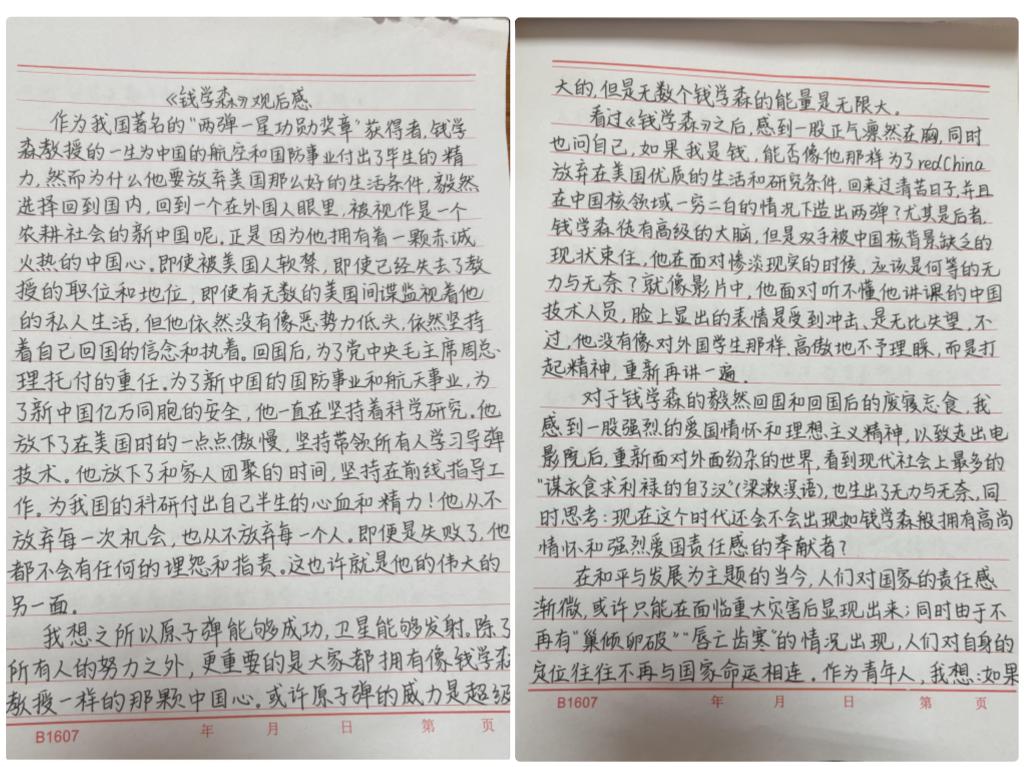 《钱学森》观后感
作为我国著名的“两弹一星功勋奖章”获得者,钱学
森教授的一生为中国的航空和国防事业付出了毕生的精
力,然而为什么他要放弃美国那么好的生活条件,毅然
选择回到国内,回到一个在外国人眼里,被视作是一个
农耕社会的新中国呢。正是因为他拥有着一颗赤诚
火热的中国心。即使被美国人软禁,即使已经失去了教
授的职位和地位,即使有无数的美国间谍监视着他
的私人生活,但他依然没有像恶势力低头,依然坚持
着自己回国的信念和执着。回国后,为了党中央毛主席周总
理托付的重任。为了新中国的国防事业和航天事业,为
了新中国亿万同胞的安全,他一直在坚持着科学研究。他
放下了在美国时的一点点傲慢,坚持带领所有人学习导弹
技术。他放下了和家人团聚的时间,坚持在前线指导工
作。为我国的科研付出自己半生的心血和精力!他从不
放弃每一次机会,也从不放弃每一个人。即便是失败了,他
都不会有任何的埋怨和指责。这也许就是他的伟大的
另一面。
我想之所以原子弹能够成功,卫星能够发射。除了
所有人的努力之外,更重要的是大家都拥有像钱学森
教授一样的那颗中国心。或许原子弹的威力是超级
B1607 年 月 日 第 页
大的,但是无数个钱学森的能量是无限大。
看过《钱学森》之后,感到一股正气凛然在胸,同时
也问自己,如果我是钱,能否像他那样为了redChina
放弃在美国优质的生活和研究条件,回来过清苦日子,并且
在中国核领域一穷二白的情况下造出两弹?尤其是后者,
钱学森徒有高级的大脑,但是双手被中国核背景缺乏的
现状束住,他在面对惨淡现实的时候,应该是何等的无
力与无奈?就像影片中,他面对听不懂他讲课的中国
技术人员,脸上显出的表情是受到冲击、是无比失望,不
过,他没有像对外国学生那样,高傲地不予理睬,而是打
起精神,重新再讲一遍。
对于钱学森的毅然回国和回国后的废寝忘食,我
感到一股强烈的爱国情怀和理想主义精神,以致走出电
影院后,重新面对外面纷杂的世界,看到现代社会上最多的
“谋衣食求利禄的自了汉”(梁漱溟语),也生出了无力与无奈,同
时思考:现在这个时代还会不会出现如钱学森般拥有高尚
情怀和强烈爱国责任感的奉献者?
在和平与发展为主题的当今,人们对国家的责任感
渐微,或许只能在面临重大灾害后显现出来;同时由于不
再有“巢倾卵破”“唇亡齿寒”的情况出现,人们对自身的
定位往往不再与国家命运相连。作为青年人,我想:如果
B1607 年 月 日 第 页